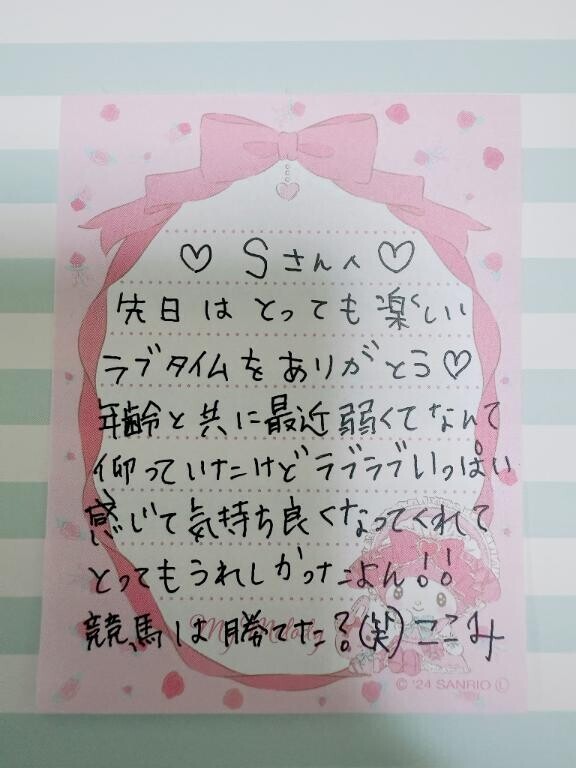 ♡ Sさんへ ♡
先日はとっても楽しい
ラブタイムをありがとう♡
年齢と共に最近弱くてなんて
仰っていたけどラブラブいっぱい
感じて気持ち良くなってくれて
とってもうれしかったよん!!
競馬は勝てた?(笑) ここみ
My Melody
© '24 SANRIO Ⓛ